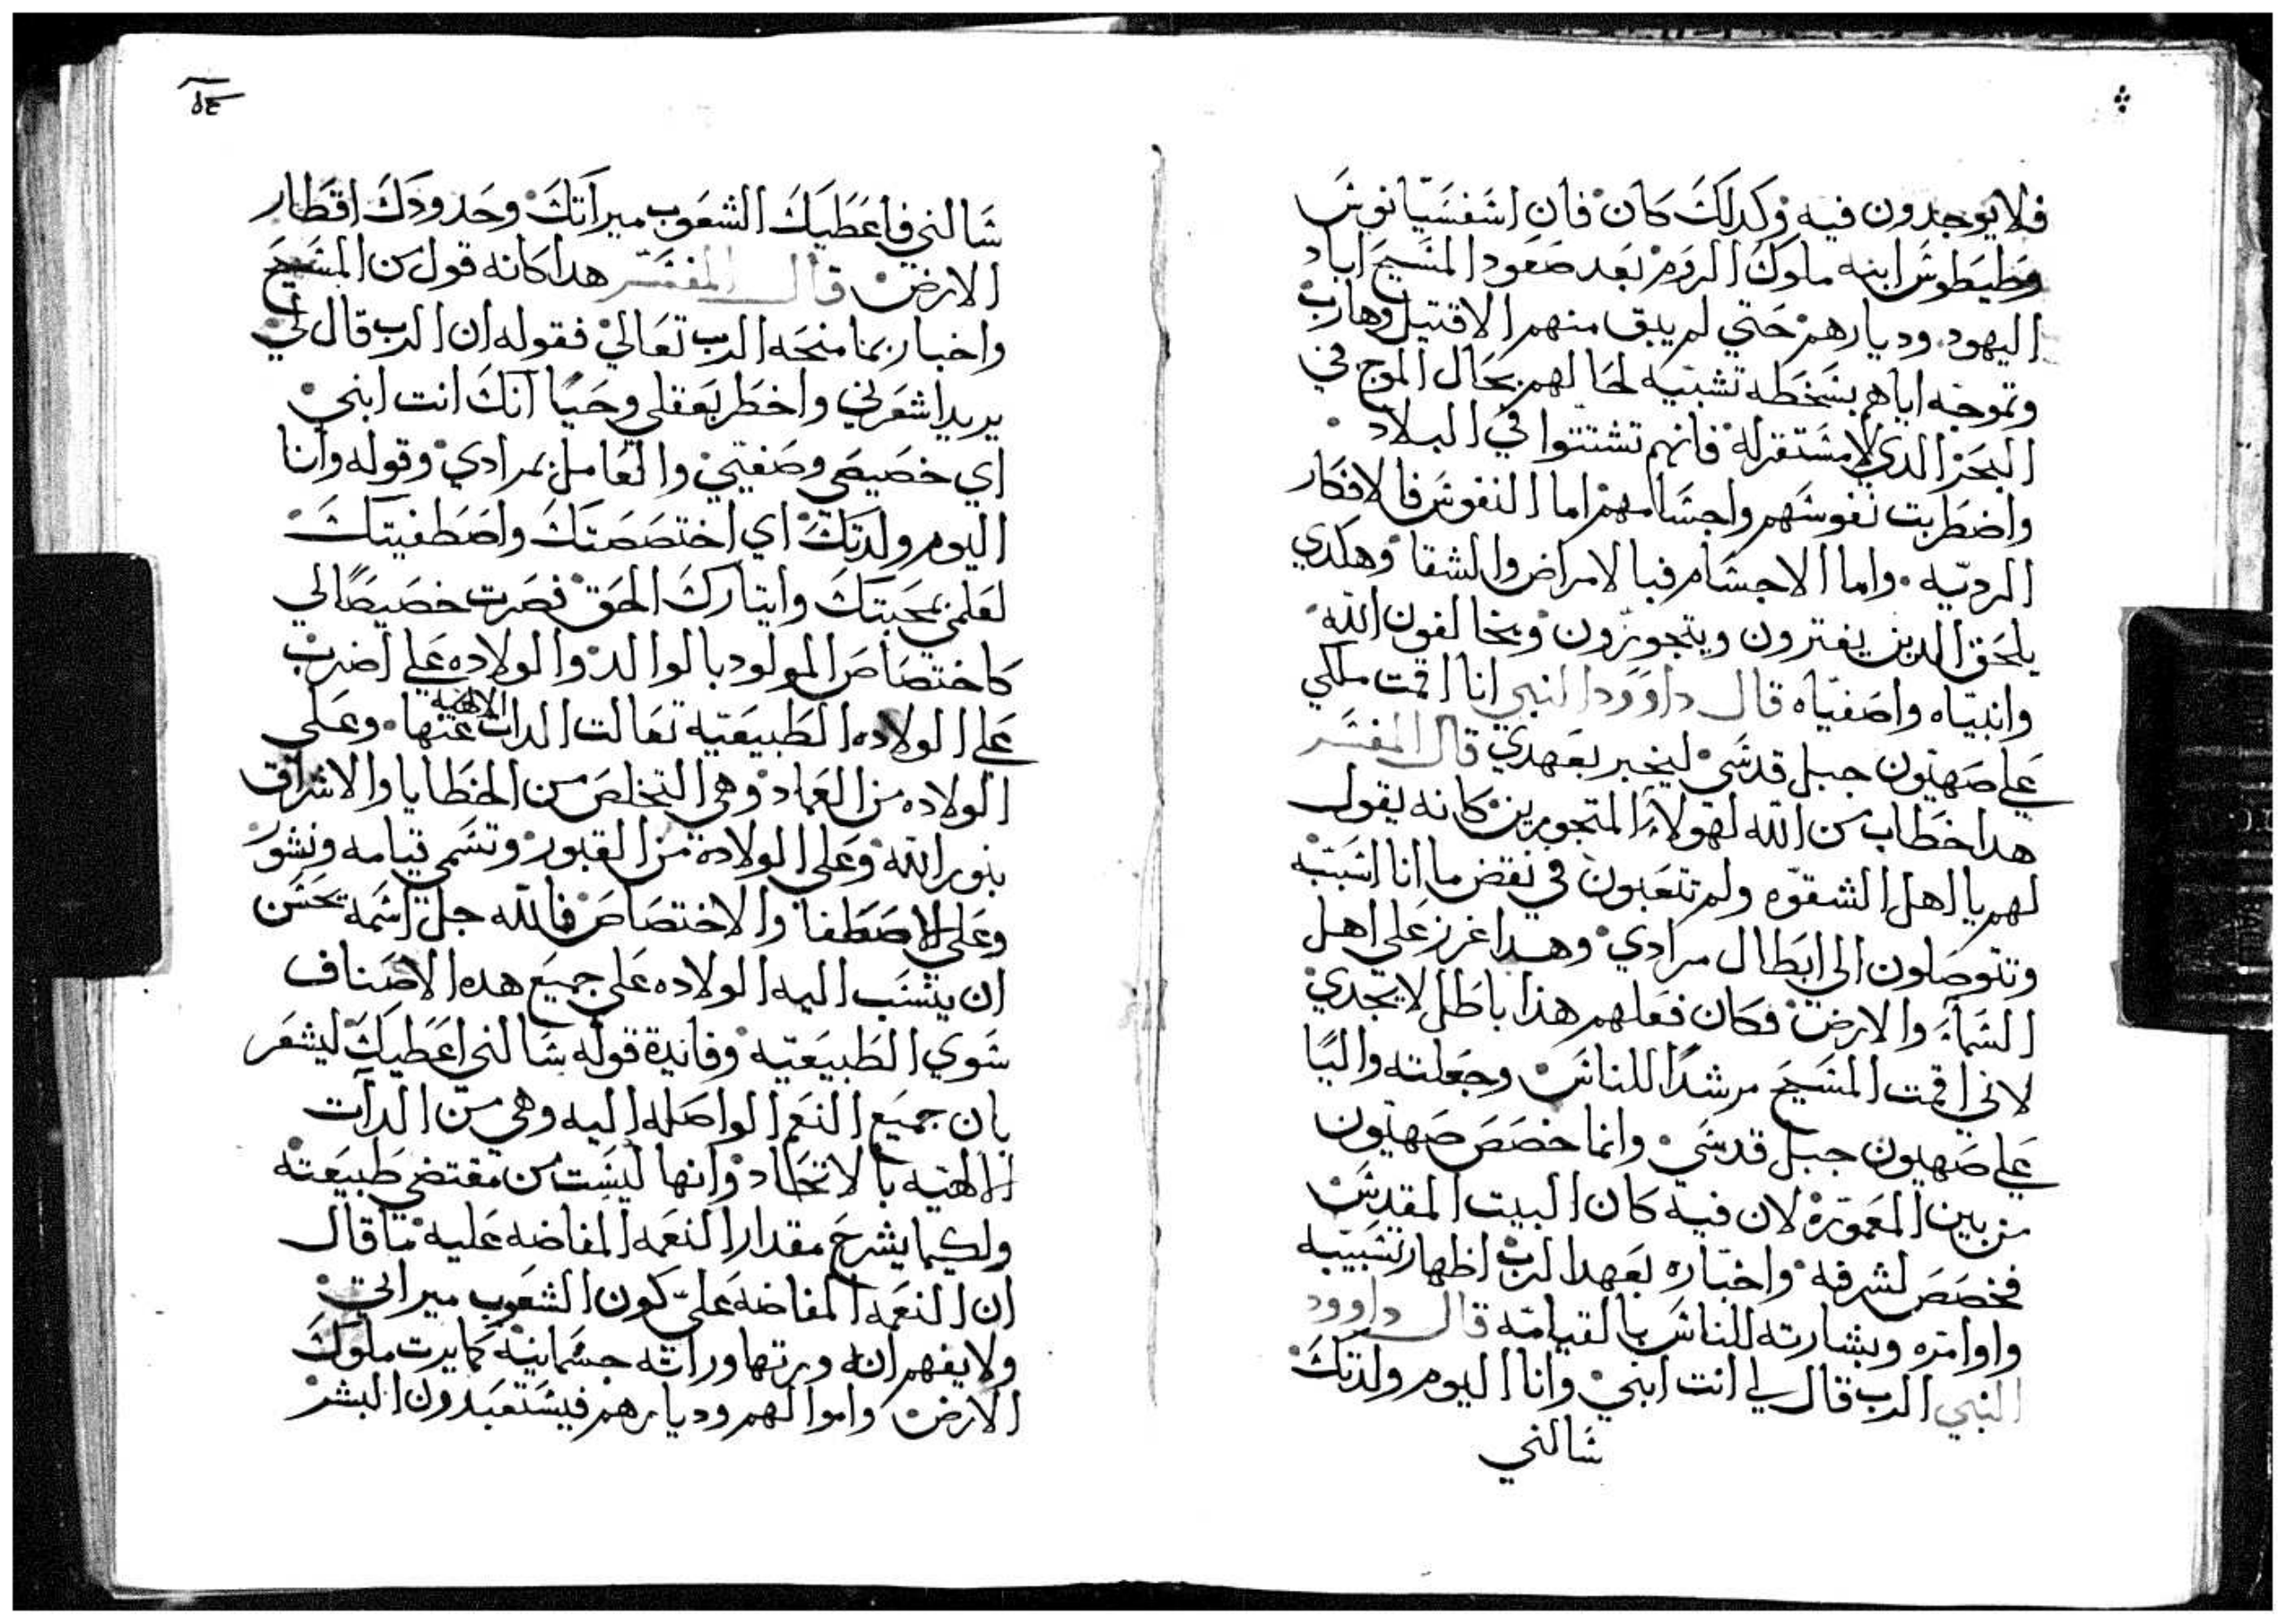 فلا يوجدون فيه وكدلك كان فان اشفشيانوش
وطيطوش ابنه ملوك الروم بعد صعود المشيح اباد
اليهود وديارهم حتي لم يبق منهم الا قتيل وهارب
وتموجه اياهم بشخطه تشبيه لحالهم بحال الموج في
البحر الدي لا مشتقر له فانهم تشتتوا في البلاد
واضطربت نفوشهم واجشامهم اما النفوش فالافكار
الرديه واما الاجشام فبالامراض والشقا وهكدي
يلحق الدين يفترون ويتجوزون ويخالفون الله
وانبياه واصفياه قال داوود النبي انا اقمت ملكي
علي صهيون جبل قدشي ليخبر بعهدي قال المفشر
هدا خطاب من الله لهولاء المتجورين كانه يقول
لهم يا اهل الشقوه ولم تتعبون في نقض ما انا اشببه
وتتوصلون الي ابطال مرادي وهدا غرز علي اهل
الشمآء والارض فكان فعلهم هذا باطل لا يجدي
لاني اقمت المشيح مرشدًا للناش وجعلته واليًا
علي صهيون جبل قدشي وانما خصص صهيون
من بين المعموره لان فيه كان البيت المقدش
فخصص لشرفه واخباره بعهد الرب اظهار تشبيبه
واوامره وبشارته للناش بالقيامه قال داوود
النبي الرب قال لي انت ابني وانا اليوم ولدتك
شالني
٥٤
شالني فاعطيك الشعوب ميراتك وحدودك اقطار
الارض قال المفشر هدا كانه قول من المشيح
واخبار بما منحه الرب تعالي فقوله ان الرب قال لي
يريد اشعرني واخطر بعقلي وحيًا انك انت ابني
اي خصيصي وصفيي والعامل بمرادي وقوله وانا
اليوم ولدتك اي اختصصتك واصطفيتك
لعلمي بمحبتك وايتارك الحق فصرت خصيصًا لي
كاختصاص المولود بالوالد والولاده علي اضرب
علي الولاده الطبيعيه تعالت الدات الالاهيه عنها وعلي
الولاده من العماد وهي التخلص من الخطايا والاشراق
بنور الله وعلي الولادة من القبور وتشمي قيامه ونشور
وعلي الاصطفا والاختصاص فالله جل اشمه يحشن
ان ينشب اليه الولاده علي جميع هده الاصناف
شوي الطبيعيه وفايدة قوله شالني اعطيك ليشعر
بان جميع النعم الواصله اليه وهي من الدات
الالاهيه بالاتحاد وانها ليشت من مقتضي طبيعته
ولكيما يشرح مقدار النعمه المفاضه عليه ما قال
ان النعمه المفاضه علي كون الشعوب ميراتي
ولا يفهم انه ورتها وراته جشمانيه كما يرت ملوك
الارض واموالهم وديارهم فيشتعبدون البشر